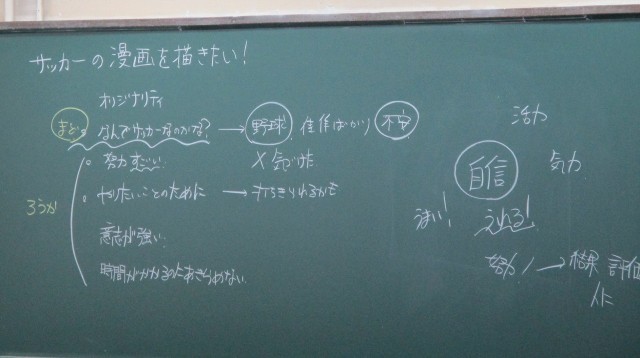 サッカーの漫画を描きたい!
オリジナリティ
まど なんでサッカーなのかな? → 野球 佳作ばかり 不安
努力すごい × 気づけた
ろうか やりたいことのために → 打ちきりれるかも
意志が強い
時間がかかるのにあきらめない
活力
自信 気力
うまい! えれる!
努力! → 結果 評価
人に